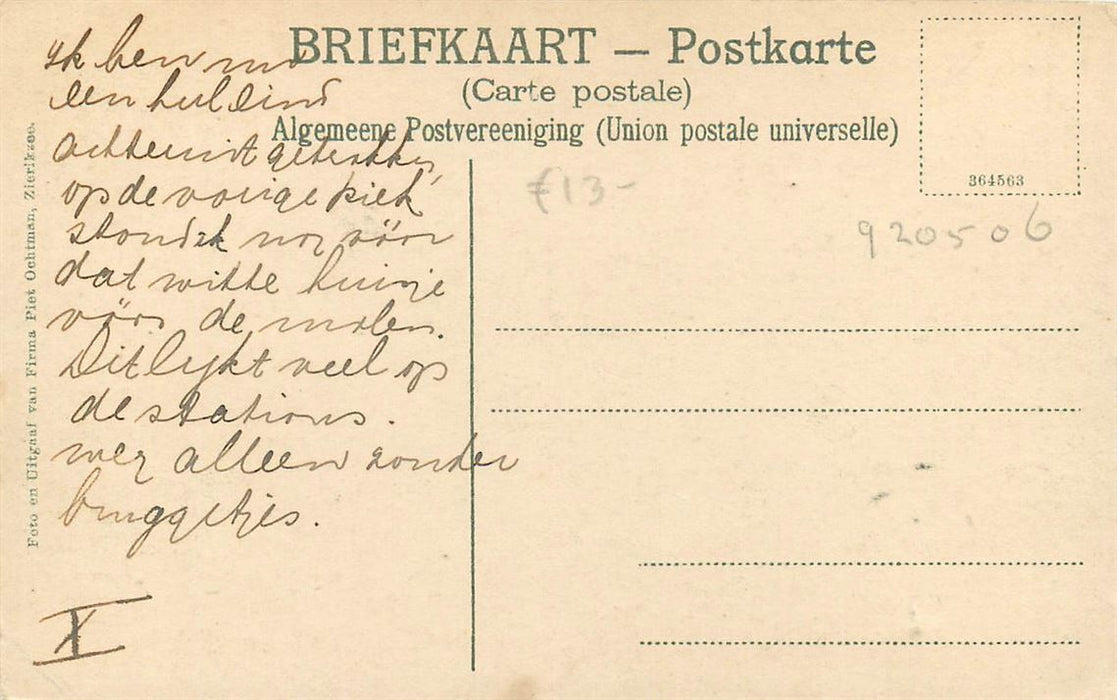 BRIEFKAART — Postkarte
(Carte postale)
Algemeene Postvereeniging (Union postale universelle)
364563
£13-
920506
Ik ben nu
een heel eind
achteruit getrokken
op de vorige kiek
stond ik nog vóór
dat witte huisje
vóór de molen.
Dit lykt veel op
de stations.
weg alleen zonder
bruggetjes.
X
Foto en Uitgaaf van Firma Piet Ochtman, Zierikzee.